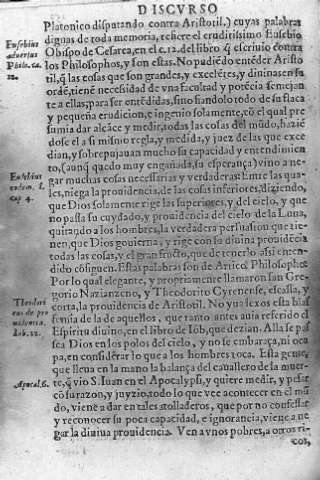 DISCVRSO
Platonico disputando contra Aristotil.) cuyas palabras
dignas de toda memoria, refiere el eruditissimo Eusebio
Obispo de Cesarea, en el c.12. del libro q̃ escriuio contra
los Philosophos, y son estas. No pudiẽdo entẽder Aristo
til, q̃ las cosas que son grandes, y excelẽtes, y diuinas en su
ordẽ, tienẽ necesidad de vna facultad y potẽcia semejan
te a ellas, para ser entẽdidas, sino fiandolo todo de su flaca
y pequeña erudicion, e ingenio solamente, cõ el qual pre
sumia dar alcãçe y medir, todas las cosas del mũdo, haziẽ
dose el a si mismo regla, y medida, y juez de las que exce
dian, y sobrepujauan mucho su capacidad y entendimien
to, (aunq̃ quedo muy engañada, su esperança) vino a ne-
gar muchas cosas necessarias y verdaderas: Entre las qua-
les, niega la prouidencia, de las cosas inferiores, diziendo,
que Dios solamente rige las superiores, y del cielo, y que
no passa su cuydado, y prouidencia del cielo de la Luna,
quitando a los hombres, la verdadera persuasion que tie-
nen, que Dios gouierna, y rige con su diuina prouidẽcia
todas las cosas, y el gran fructo, que de tenerlo assi enten-
dido cõsiguen. Estas palabras son de Attico, Philosopho
Por lo qual elegante, y propriamente llamaron san Gre-
gorio Nazianzeno, y Theodorito Cyrenense, escassa, y
corta, la prouidencia de Aristotil. No va lexos esta blas
femia de la de aquellos, que tanto antes auia referido el
Espiritu diuino, en el libro de Iob, que dezian. Alla se pas
sea Dios en los polos del cielo, y no se embaraça, ni ocu
pa, en considerar lo que a los hombres toca. Esta gente,
que lleua en la mano la balança del cauallero de la muer-
te, q̃ vio S. Iuan en el Apocalypsi, y quiere medir, y pesar
cõ su razon, y juyzio, todo lo que vee acontecer en el mũ
do, viene a dar en tales atolladeros, que por no confessar
y reconocer su poca capacidad, e ignorancia, viene a ne
gar la diuina prouidencia. Ven a vnos pobres, a otros ri-
cos,
Eusebius
aduersus
Philo. ca.
12.
Eusebius
eodem. l.
cap 4.
Theodori
tus de pro
uidentia.
Iob. 22.
Apocal. 6.